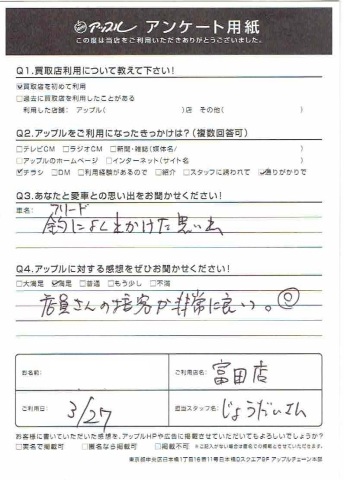 アップル アンケート用紙
この度は当店をご利用いただきありがとうございました。
Q1.買取店利用について教えて下さい!
☑買取店を初めて利用
□過去に買取店を利用したことがある
利用した店舗: アップル( )店 その他( )
Q2.アップルをご利用になったきっかけは?(複数回答可)
□テレビCM □ラジオCM □新聞・雑誌(媒体名/ )
□アップルのホームページ □インターネット(サイト名 )
☑チラシ □DM □利用経験があるので □紹介 □スタッフに誘われて ☑通りがかりで
Q3.あなたと愛車との思い出をお聞かせください!
車名: フリード
釣によく出かけた思い出
Q4.アップルに対する感想をぜひお聞かせください!
□大満足 ☑満足 □普通 □もう少し □不満
店員さんの接客が非常に良い。◎
お名前:
ご利用店名: 富田店
ご利用日: 3/27
担当スタッフ名: じょうだいさん
お客様に書いていただいた感想を、アップルHPや広告に掲載させていただいてもよろしいでしょうか?
□実名で掲載可 □匿名なら掲載可 □掲載不可 ※ご記入がない場合は匿名での掲載とさせていただきます。
東京都中央区日本橋1丁目16番11号日本橋Dスクエア8F アップルチェーン本部